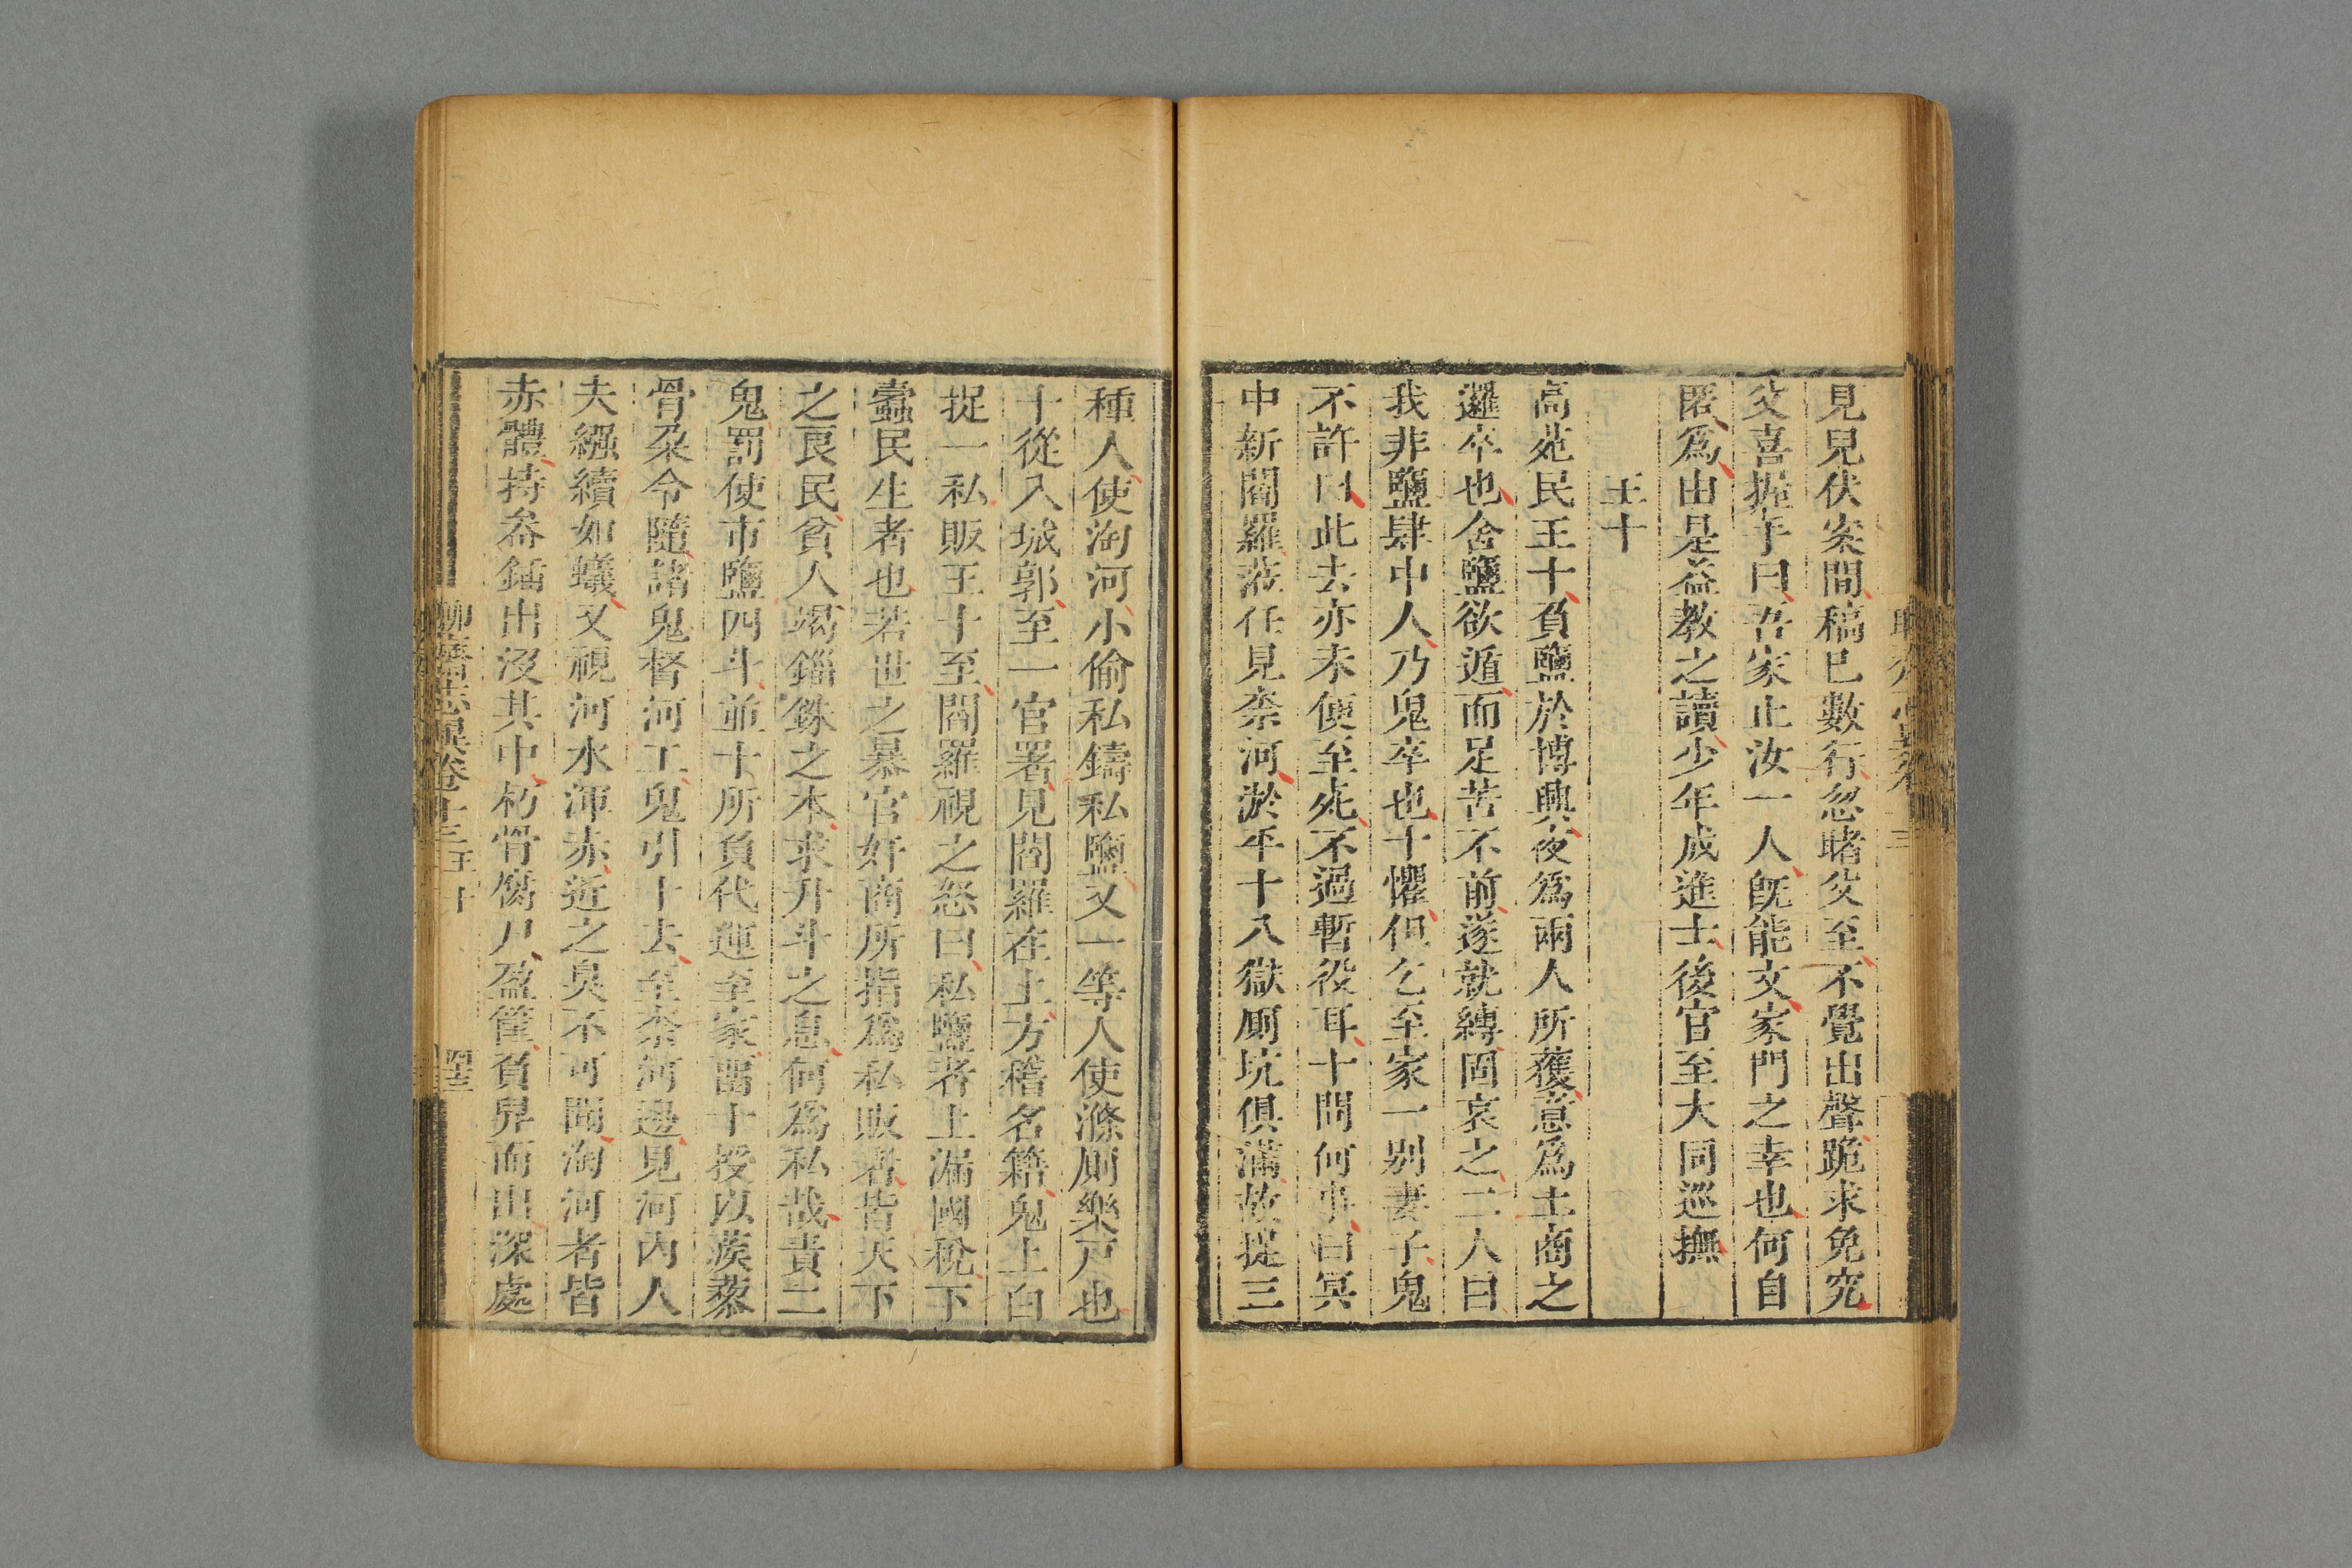 見兒伏案間稿已數行忽睹父至不覺出聲跪求免究
父喜握手曰吾家止汝一人既能文家門之幸也何自
匿為由是益教之讀少年成進士後官至大同巡撫
王十
高苑民王十負鹽於博興夜爲兩人所獲意爲土商之
邏卒也舍鹽欲遁而足苦不前遂就縛固哀之二人曰
我非鹽肆中人乃鬼卒也十懼但乞至家一别妻子鬼
不許曰此去亦未便至死不過暫役耳十問何事曰冥
中新閻羅蒞任見柰河淤平十八獄厠坑俱滿故捉三
種人使淘河小偷私鑄私鹽又一等人使滌厠樂戸也
十從入城郭至一官署見閻羅在上方稽名籍鬼上白
捉一私販王十至閻羅視之怒曰私鹽者上漏國稅下
蠹民生者也若世之暴官奸商所指爲私販者皆天下
之良民貧人竭錙銖之本求升斗之息何爲私哉責二
鬼罰使市鹽四斗並十所負代運至家畱十授以蒺藜
骨朶令隨諸鬼督河工鬼引十去至柰河邊見河內人
夫繦續如蟻又視河水渾赤近之臭不可聞淘河者皆
赤體持畚鍤出沒其中朽骨腐尸盈筐負舁而出深處
聊齋志異卷十三王十